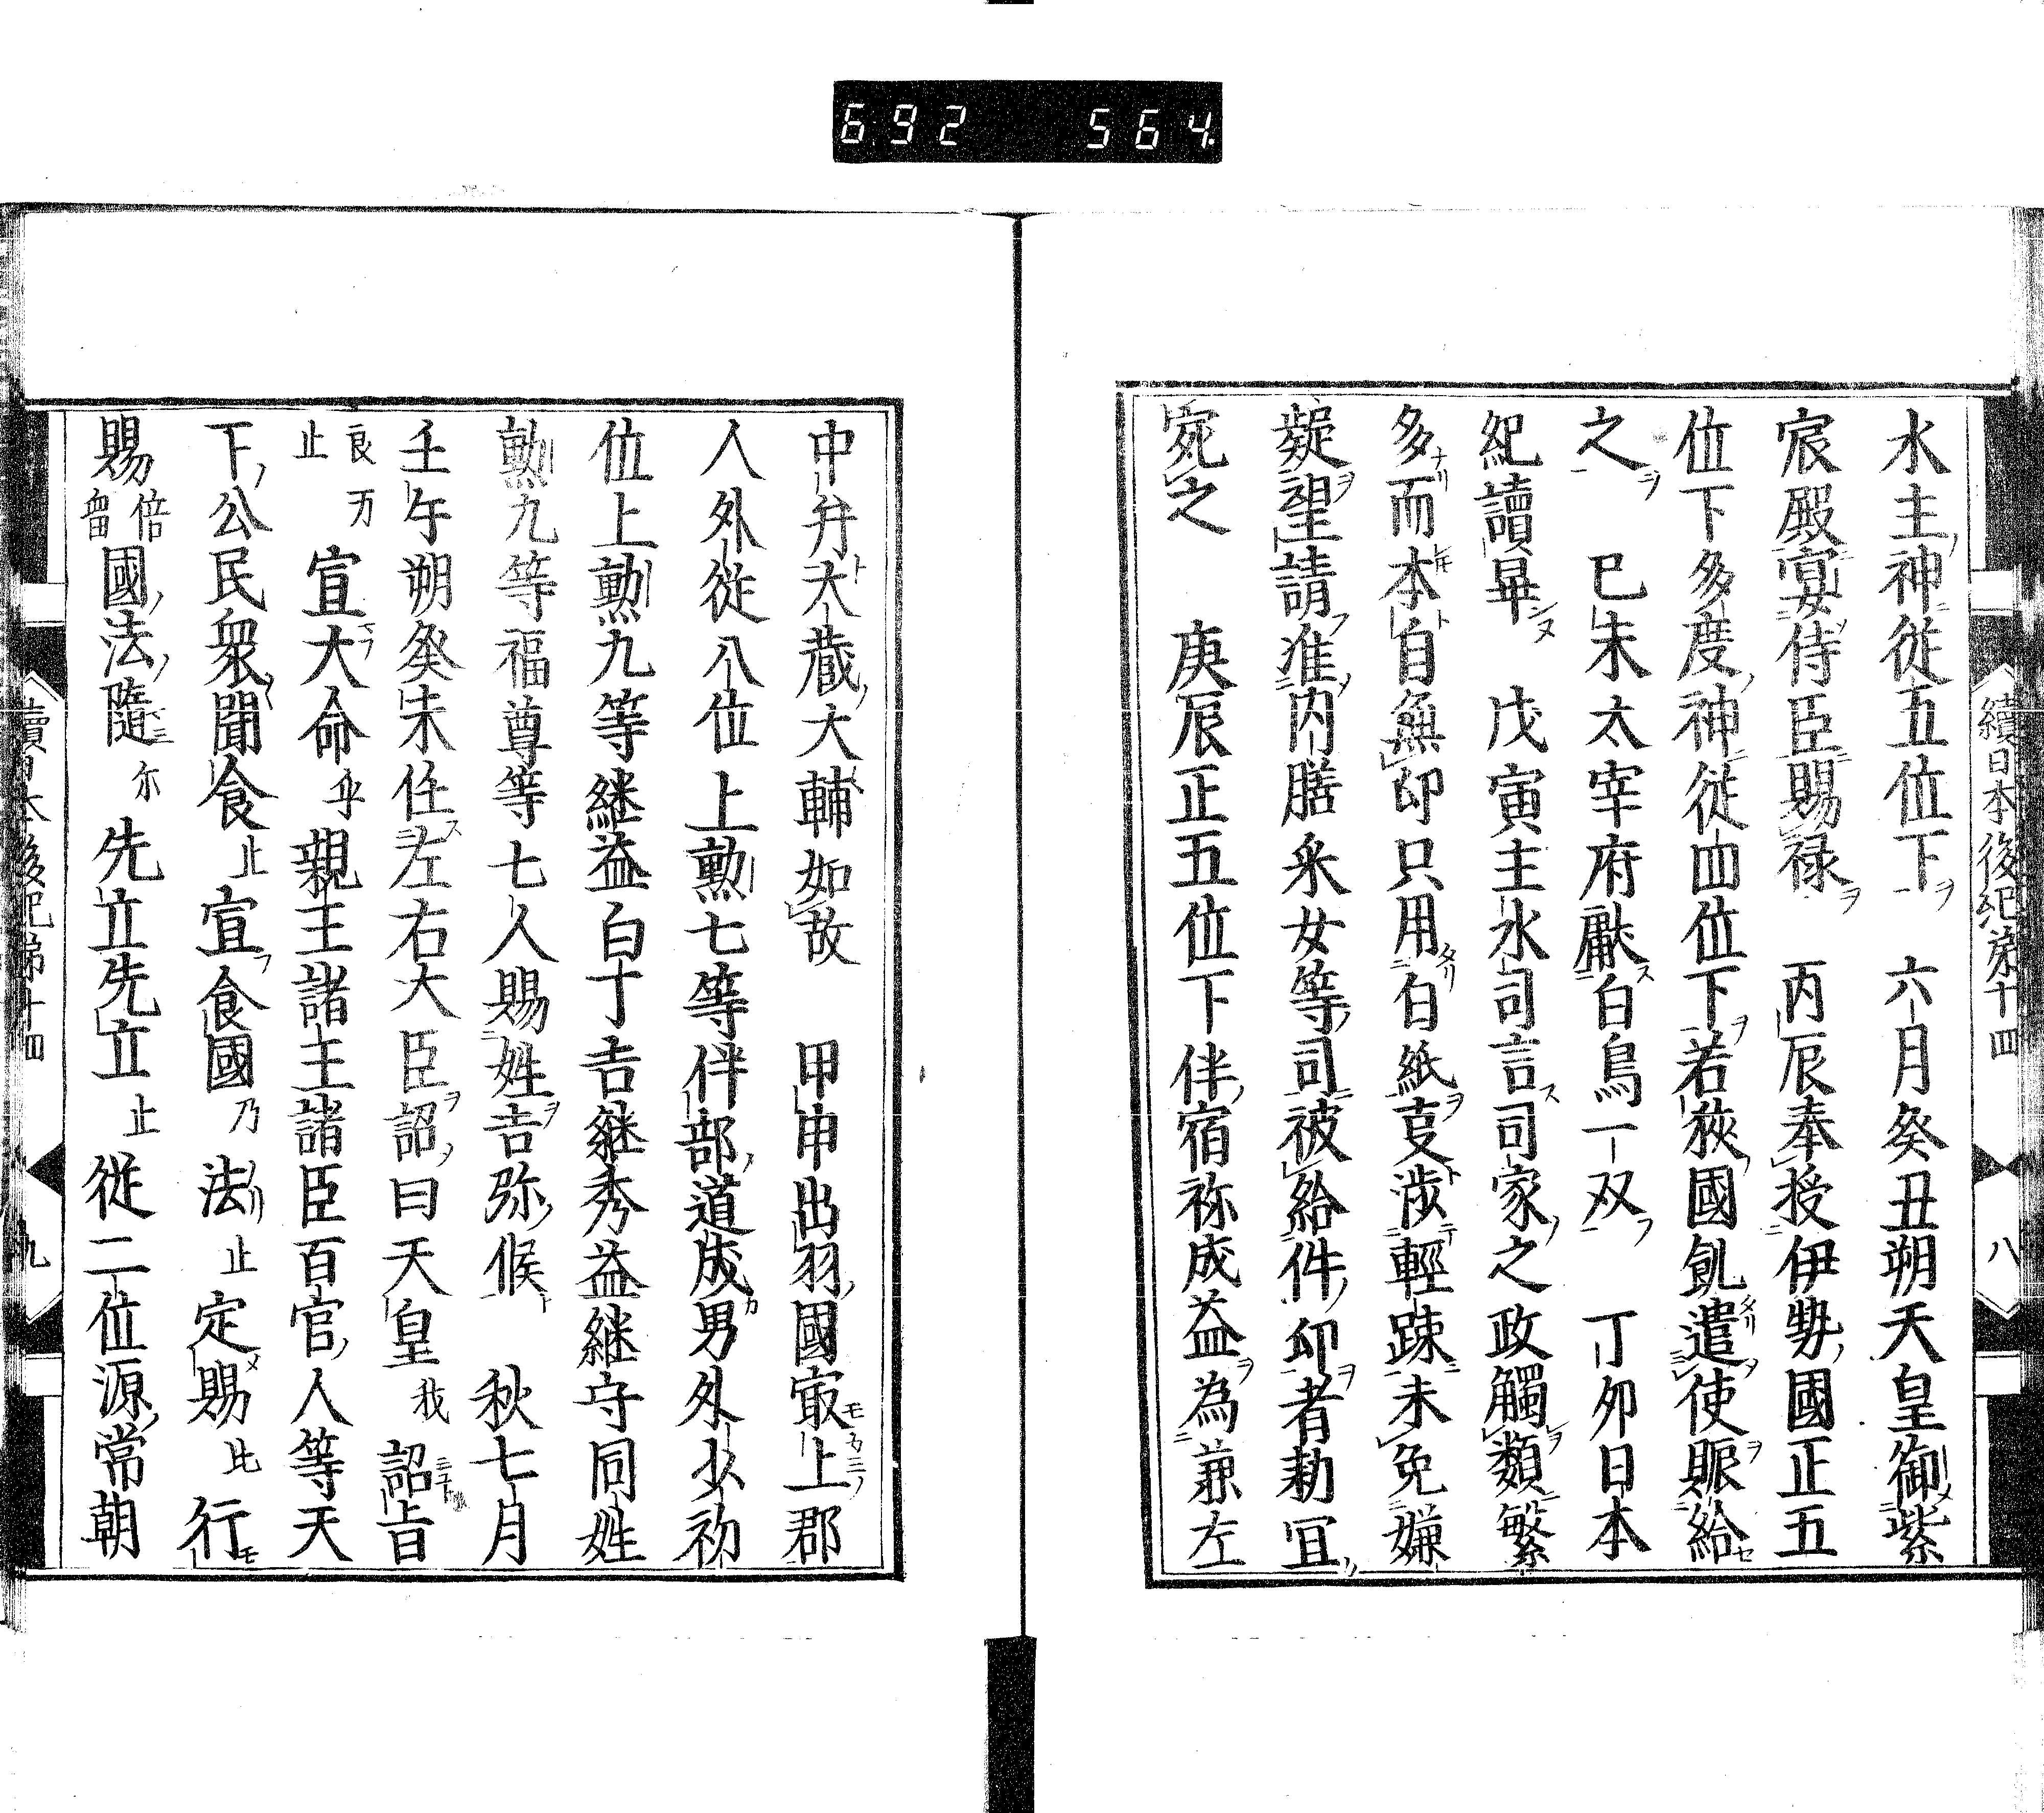 692 564
續日本後紀第十四 八
水主神從五位下 六月癸丑朔天皇御紫
宸殿宴侍臣賜禄 丙辰奉授伊勢國正五
位下多度神從四位下若狹國飢遣使賑給
之 己未太宰府獻白鳥一双 丁卯日本
紀讀畢 戊寅主水司言司家之政觸類繁
多而本自無印只用白紙支渉輕踈未免嫌
疑望請准内膳采女等司被給件印者勅冝
宛之 庚辰正五位下伴宿祢成益為兼左
中弁大藏大輔如故 甲申出羽國㝡上郡
人外從八位上勲七等伴部道成男外少初
位上勲九等継益白丁吉継秀益継守同姓
勲九等福尊等七人賜姓吉弥侯 秋七月
壬午朔癸未任左右大臣詔曰天皇我詔旨
良万止宣大命乎親王諸王諸臣百官人等天
下公民衆聞食止宣食國乃法止定賜比行
賜倍留國法隨尓先立先立止從二位源常朝
續日本後紀第十四 九